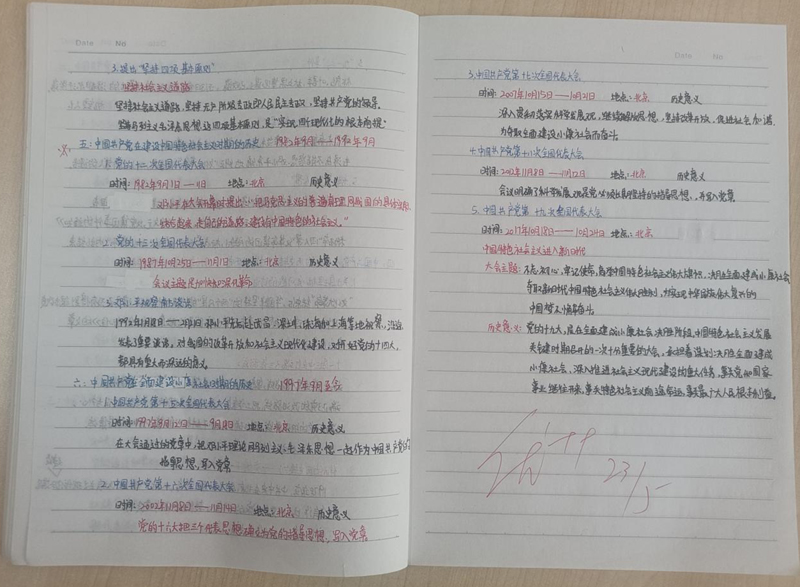 Date No
3. 提出"坚持四项基本原则"
坚持社会主义道路
坚持社会主义道路,坚持无产阶级专政即人民民主专政,坚持共产党的领导,
坚持马列主义毛泽东思想这四项基本原则,是"实现四个现代化的根本前提"
五、中国共产党在建设中国特色社会主义时期的历史 1982年9月—1992年9月
1. 党的十二次全国代表大会
时间:1982年9月1日—11日 地点:北京 历史意义
邓小平在大会开幕时提出:"把马克思主义的普遍真理同我国的具体实际
结合起来,走自己的道路,建设有中国特色的社会主义。"
2. 党的十三次全国代表大会
时间:1987年10月25日—11月1日 地点:北京 历史意义
会议主题是加快和深化改革
1992年1月18日—2月21日 邓小平先后赴武昌、深圳、珠海和上海等地视察,
发表了重要谈话,对我国的改革开放和社会主义现代化建设,对开好党的十四大,
都具有重大而深远的意义。
六、中国共产党全面建设小康社会时期的历史 1997年9月至今
1. 中国共产党第十五次全国代表大会
时间:1997年9月12日—9月18日 地点:北京 历史意义
在大会通过的党章中,把邓小平理论同马列主义、毛泽东思想一起作为中国共产党的
指导思想,写入党章
2. 中国共产党第十六次全国代表大会
时间:2002年11月8日—11月14日 地点:北京 历史意义
党的十六大把三个代表思想确立为党的指导思想,写入党章
Date No
3. 中国共产党第十七次全国代表大会
时间:2007年10月15日—10月21日 地点:北京 历史意义
深入贯彻落实科学发展观,继续解放思想,坚持改革开放,促进社会和谐,
为夺取全面建设小康社会而奋斗
4. 中国共产党第十八次全国代表大会
时间:2012年11月8日—11月12日 地点:北京 历史意义
会议明确了科学发展观是党必须长期坚持的指导思想,并写入党章
5. 中国共产党第十九次全国代表大会
时间:2017年10月18日—10月24日 地点:北京
中国特色社会主义进入新时代
大会主题:不忘初心,牢记使命,高举中国特色社会主义伟大旗帜,决胜全面建成小康社会
夺取新时代中国特色社会主义伟大胜利,为实现中华民族伟大复兴的
中国梦不懈奋斗
历史意义:党的十九大,是在全面建成小康社会决胜阶段,中国特色社会主义发展
关键时期召开的一次十分重要的大会,承担着谋划决胜全面建成
小康社会,深入推进社会主义现代化建设的重大任务,事关党和国家
事业继往开来,事关特色社会主义前途命运,事关最广大人民根本利益。
23/5